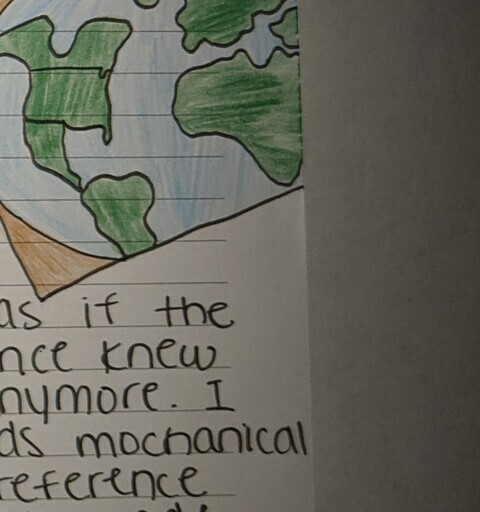 as if the
nce knew
nymore. I
ds mochanical
reference